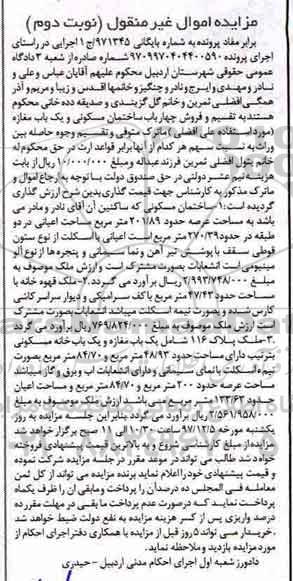 مزایده اموال غیر منقول (نوبت دوم)
برابر مفاد پرونده به شماره بایگانی ۹۷۱۳۴۵/ج ۱ اجرایی در راستای
اجرای پرونده ۹۷۰۹۹۷۰۴۰۴۴۰۰۵۹۰ شماره صادره از شعبه ۳ دادگاه
عمومی حقوقی شهرستان اردبیل محکوم علیهم آقایان عباس و علی و
نادر و مهدی و ایرج و نادر و چنگیز و خانمها اقدس و زیبا و مریم و آذر
همگی افضلی ثمرین و خانم گل گزیندی و صدیقه دده خانی محکوم
هستند به تقسیم و فروش چهار باب ساختمان مسکونی و یک باب مغازه
(مورد استفاده علی افضلی) ماترک متوفی و تقسیم وجوه حاصله بین
وراث به نسبت سهم هر کدام از آنها برابر قواعد ارث در حق محکوم له
خانم بتول افضلی ثمرین فرزند عبداله و مبلغ ۱۰/۰۰۰/۰۰۰ ریال از بابت
هزینه نیم عشر دولتی در حق صندوق دولت با توجه به ارجاع اموال و
ماترک مذکور به کارشناس جهت قیمت گذاری بدین شرح ارزش گذاری
گردیده است: ۱- ساختمان مسکونی که ساکنین آن آقای نادر و مادر می
باشد به مساحت عرصه حدود ۲۰۱/۸۹ متر مربع مساحت اعیانی در دو
طبقه در حدود ۲۷۰/۳۹ متر مربع است اعیانی با اسکلت از نوع ستون
قوطی سقف با پوشش تیر آهن و نما سیمانی و پنجره ها از نوع آلو
مینیومی است انشعابات بصورت مشترک است و ارزش ملک موصوف به
مبلغ ۲/۹۹۳/۷۴۸/۰۰۰ ریال بر آورد می گردد. ۲-ملک قهوه خانه با
مساحت حدود ۴۷/۴۳ متر مربع با کف سرامیکی و دیوار سراسر کاشی
کارس شده و بصورت نیمه اسکلت میباشد انشعابات بصورت مشترک
است ارزش ملک موصوف به مبلغ ۷۶۹/۸۲۴/۰۰۰ ریال برآورد می گردد
۳-ملک پلاک ۱۱۶ شامل یک باب مغازه و یک باب خانه میسکونی
بترتیب دارای مساحت حدود ۴۸/۹۳ متر مربع و ۸۴/۷۰ متر مربع بصورت
نیم اسکلت با نمای سیمانی و دارای انشعابات آب و برق و گاز میباشد
مساحت عرصه حدود ۲۰۰ متر مربع و ۸۴/۷۰ متر مربع و مساحت اعیان
حدود ۱۳۳/۶۳ متر مربع می باشد ارزش ملک موصوف به مبلغ
۲/۵۶۱/۹۵۸/۰۰۰ ریال برآورد می گردد بنابر این جلسه مزایده به روز
یکشنبه مورخه ۹۷/۱۲/۵ ساعت ۱۰/۳۰ الی ۱۱ صبح برگزار خواهد شد
مزایده از مبلغ کارشناسی شروع و به بالاترین قیمت پیشنهادی فروخته
خواهد شد طالب می تواند در موعد مقرر در جلسه مزایده شرکت نموده
و قیمت پیشنهادی خود را اعلام نماید برنده مزایده می تواند از کل ثمن
معامله فی المجلس ده درصد آن را پرداخت و مابقی آن را ظرف یکماه
پرداخت نمایند که در صورت عدم پرداخت ما بقی در مهلت مقرر ده
درصد واریزی پس از کسر هزینه مزایده به نفع دولت ضبط خواهد شد
.خریدار می تواند ۵ روز قبل از مزایده با همکاری دفتر اجرای احکام از
مورد مزایده بازدید و ملاحظه نماید.
دادورز شعبه اول اجرای احکام مدنی اردبیل - حیدری